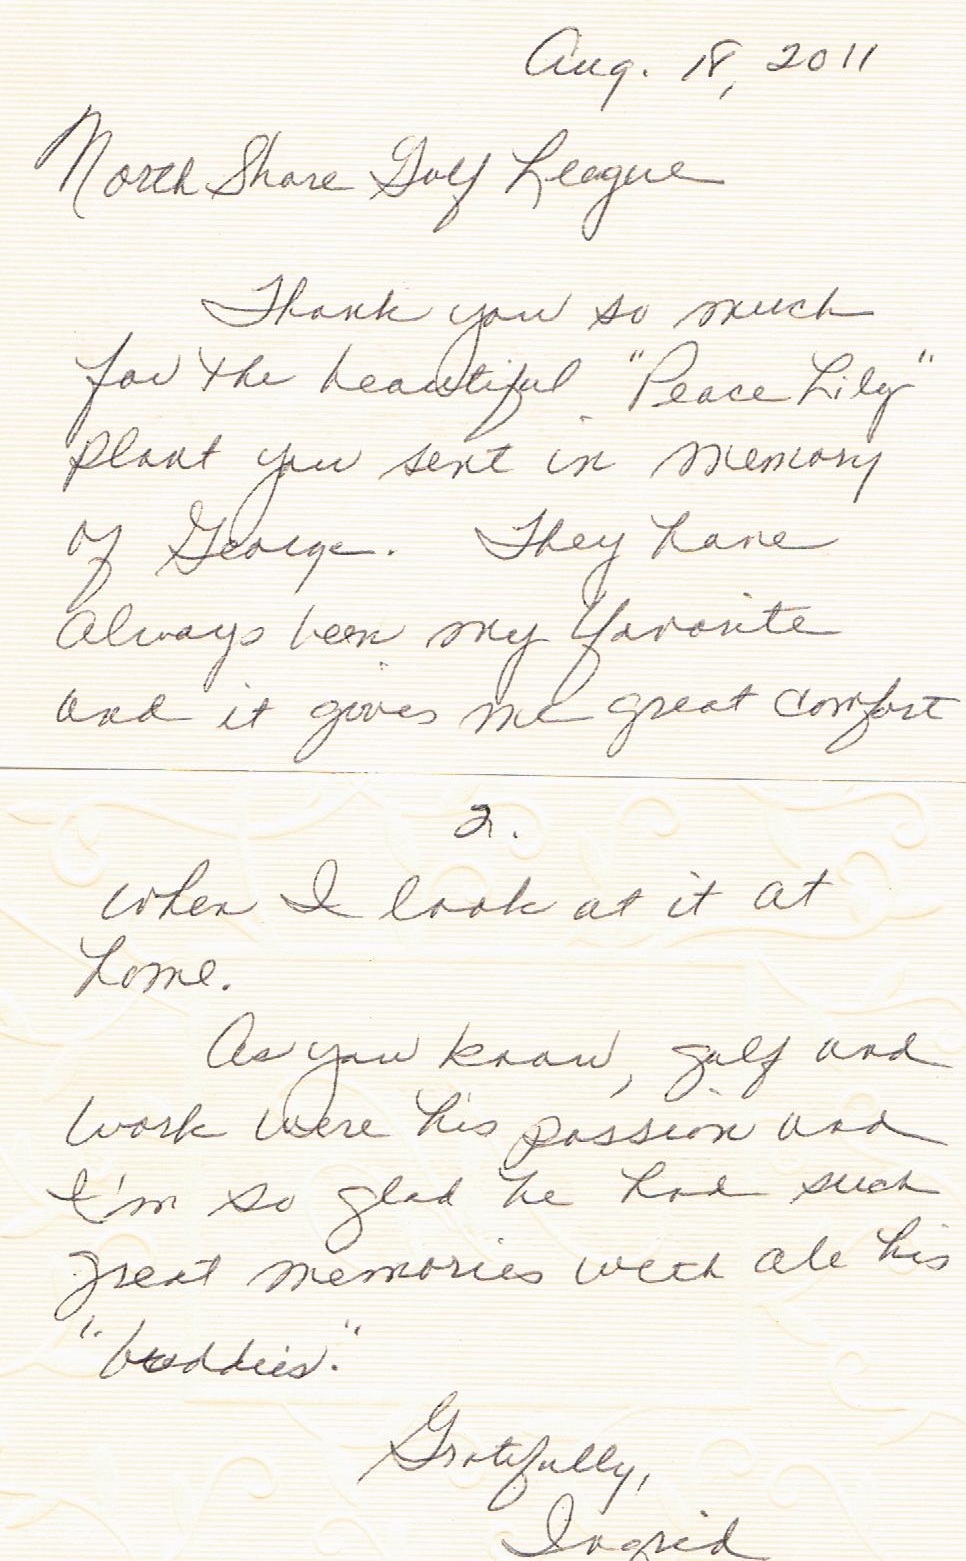 Aug. 18, 2011
North Shore Golf League
Thank you so much
for the beautiful "Peace Lily"
plant you sent in memory
of George. They have
always been my favorite
and it gives me great comfort
2.
when I look at it at
home.
As you know, golf and
work were his passion and
I'm so glad he had such
great memories with all his
"buddies."
Gratefully,
Ingrid